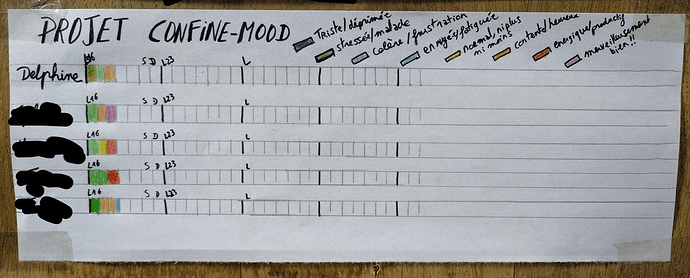 PROJET CONFINE-MOOD
Triste/déprimée
stressé/malade
Colère/frustration
ennuyé/fatiguée
normal, ni plus
ni moins
content/heureux
énergique/productif
merveilleusement
bien!!
L16 S D L23 L
Delphine
L16 S D L23 L
L16 S D L23 L
L16 S D L23
L16 S D L23 L